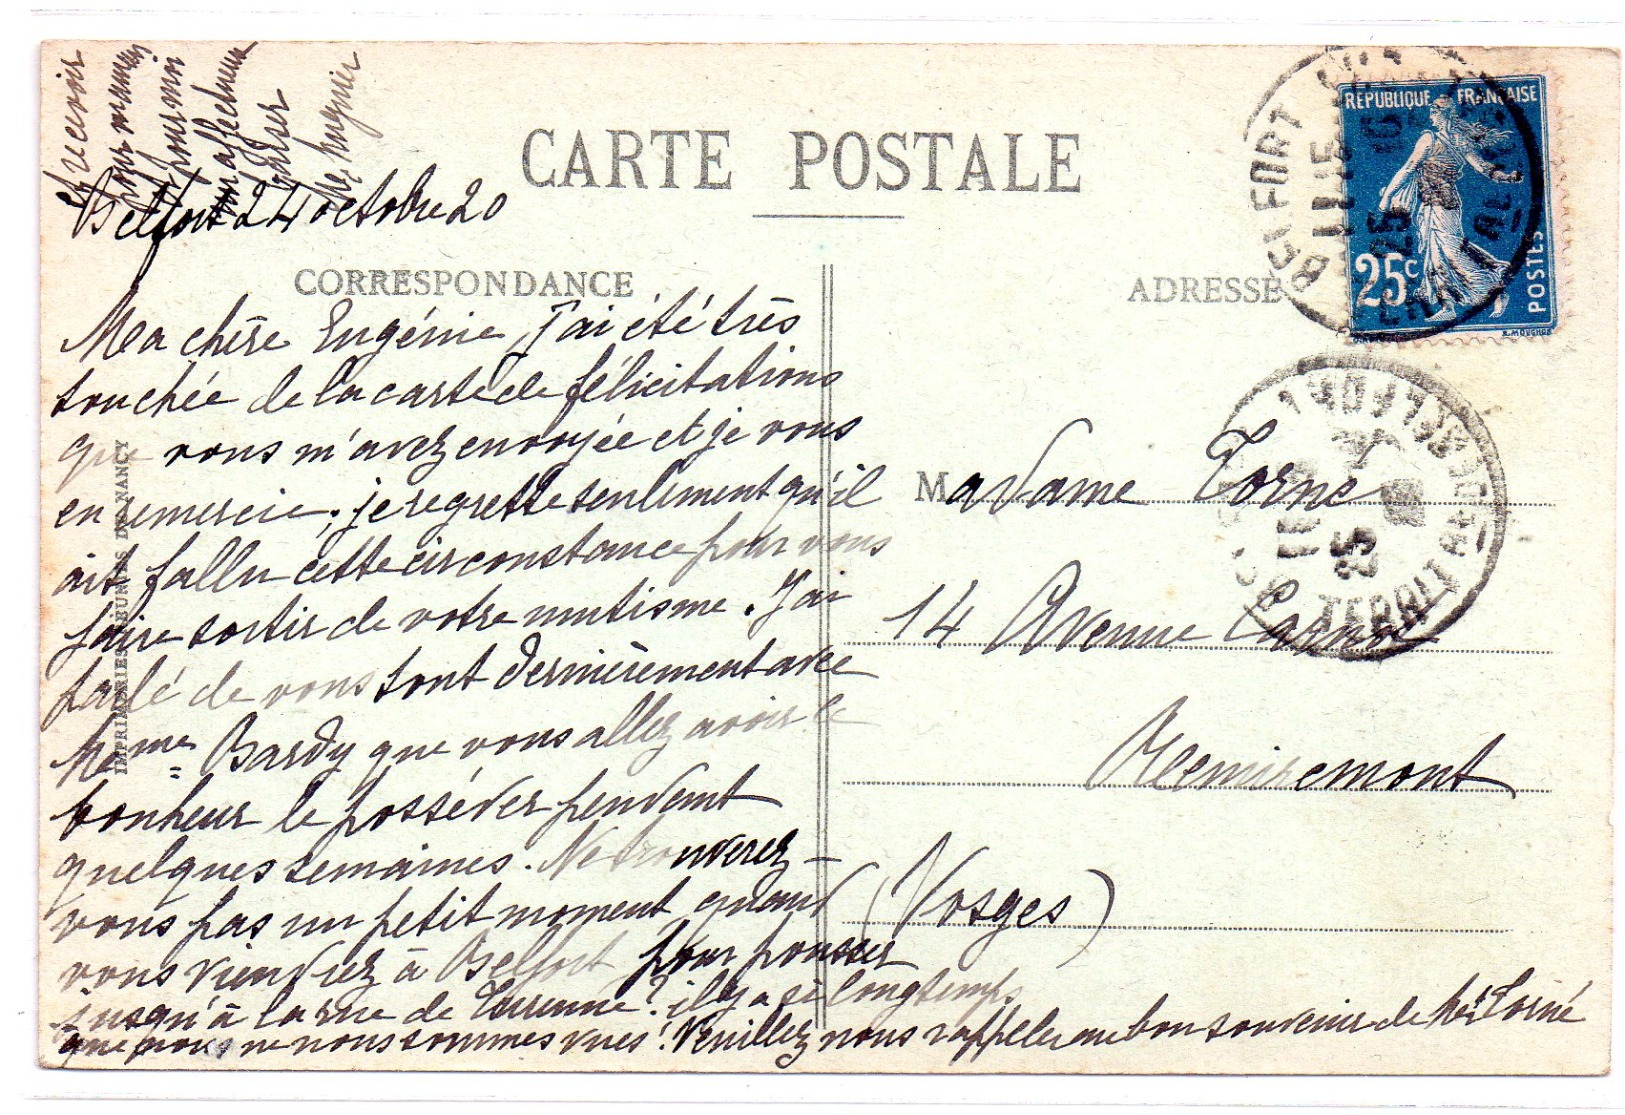 CARTE POSTALE
CORRESPONDANCE
ADRESSE
RÉPUBLIQUE FRANÇAISE
25c
POSTES
BELFORT
11 15
25
BELFORT
25
IMPRIMERIES RÉUNIES DE NANCY
Belfort 24 octobre 20
Ma chère Eugénie, J'ai été très
touchée de la carte de félicitations
que vous m'avez envoyée et je vous
en remercie; je regrette seulement qu'il
ait fallu cette circonstance pour vous
faire sortir de votre mutisme. J'ai
parlé de vous tout dernièrement avec
Mme Bardy que vous allez avoir le
bonheur le posséder pendant
quelques semaines. Ne trouverez-
vous pas un petit moment quand
vous viendrez à Belfort pour pousser
jusqu'à la rue de Turenne? il y a si longtemps
que nous ne nous sommes vues! Veuillez nous rappeler au bon souvenir de Mr Torné
et recevoir
pour maman
et pour moi
un affectueux
baiser
Madame Torné
14 Avenue Carnot
Remiremont
(Vosges)